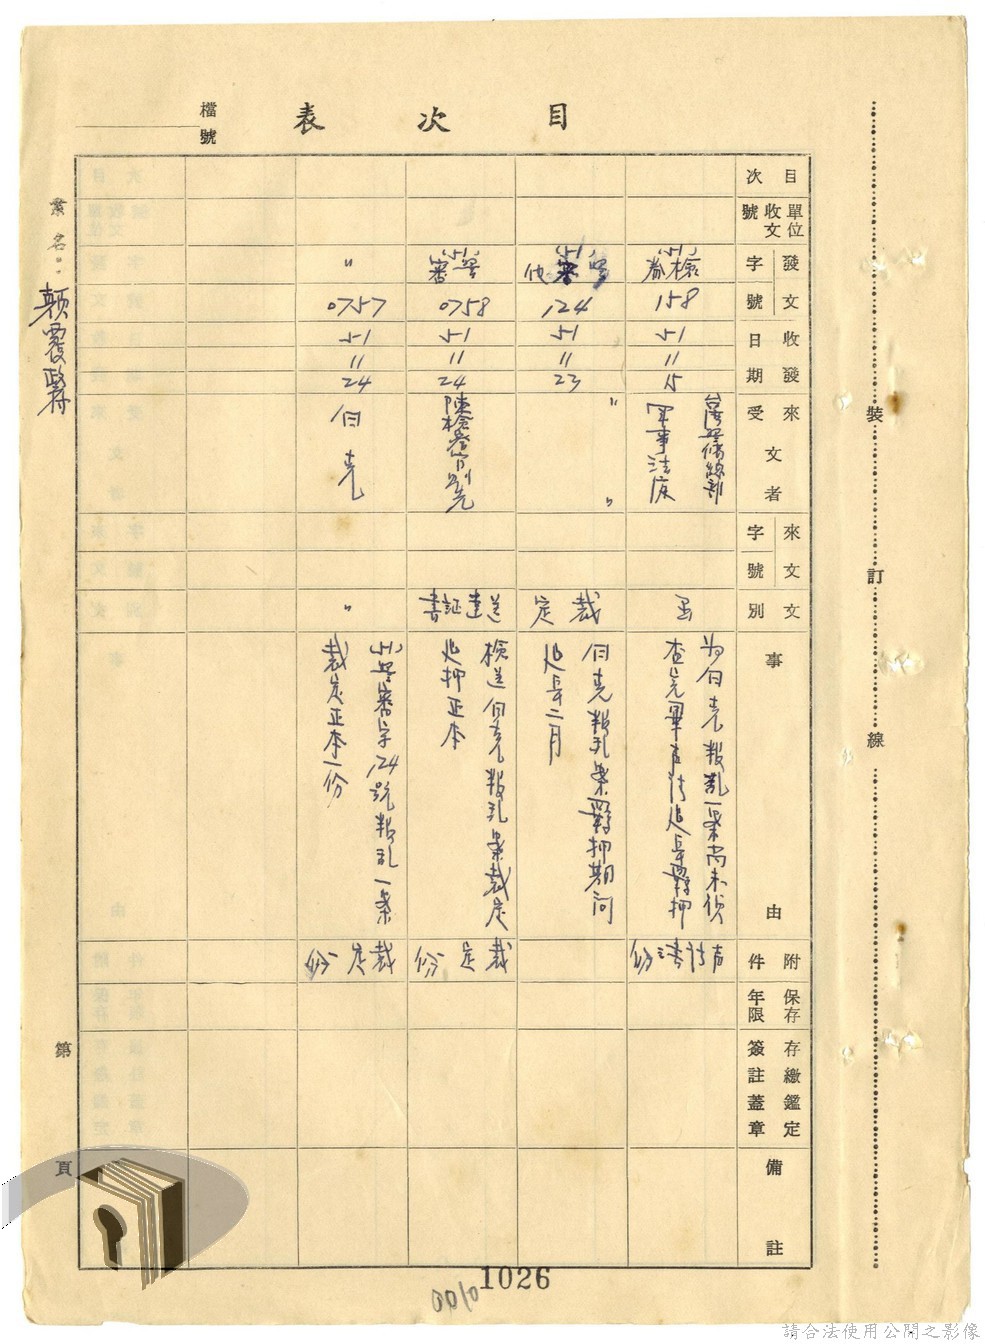 目次表
檔號
案名：顛覆政府
目次
單位收文號
發文字號
收發日期
來文受文者
來文字號
文別
事由
附件
保存年限
存繳鑑定簽註蓋章
備註
(51)
158
51
11
15
台灣警備總部
軍事法庭
為白克叛亂一案尚未偵
查完畢声請延長羈押
声請書
(51)
124
51
11
23
〃
〃
裁定
白克叛乱案羈押期间
延長二月
(51)
0758
51
11
24
陳檢察官
送達証書
檢送白克叛乱案裁定
延押正本
裁定 份
〃
0757
51
11
24
白克
〃
(51)警審字124號叛乱一案
裁定正本一份
裁定 份
裝
訂
線
第
頁
1026
請合法使用公開之影像